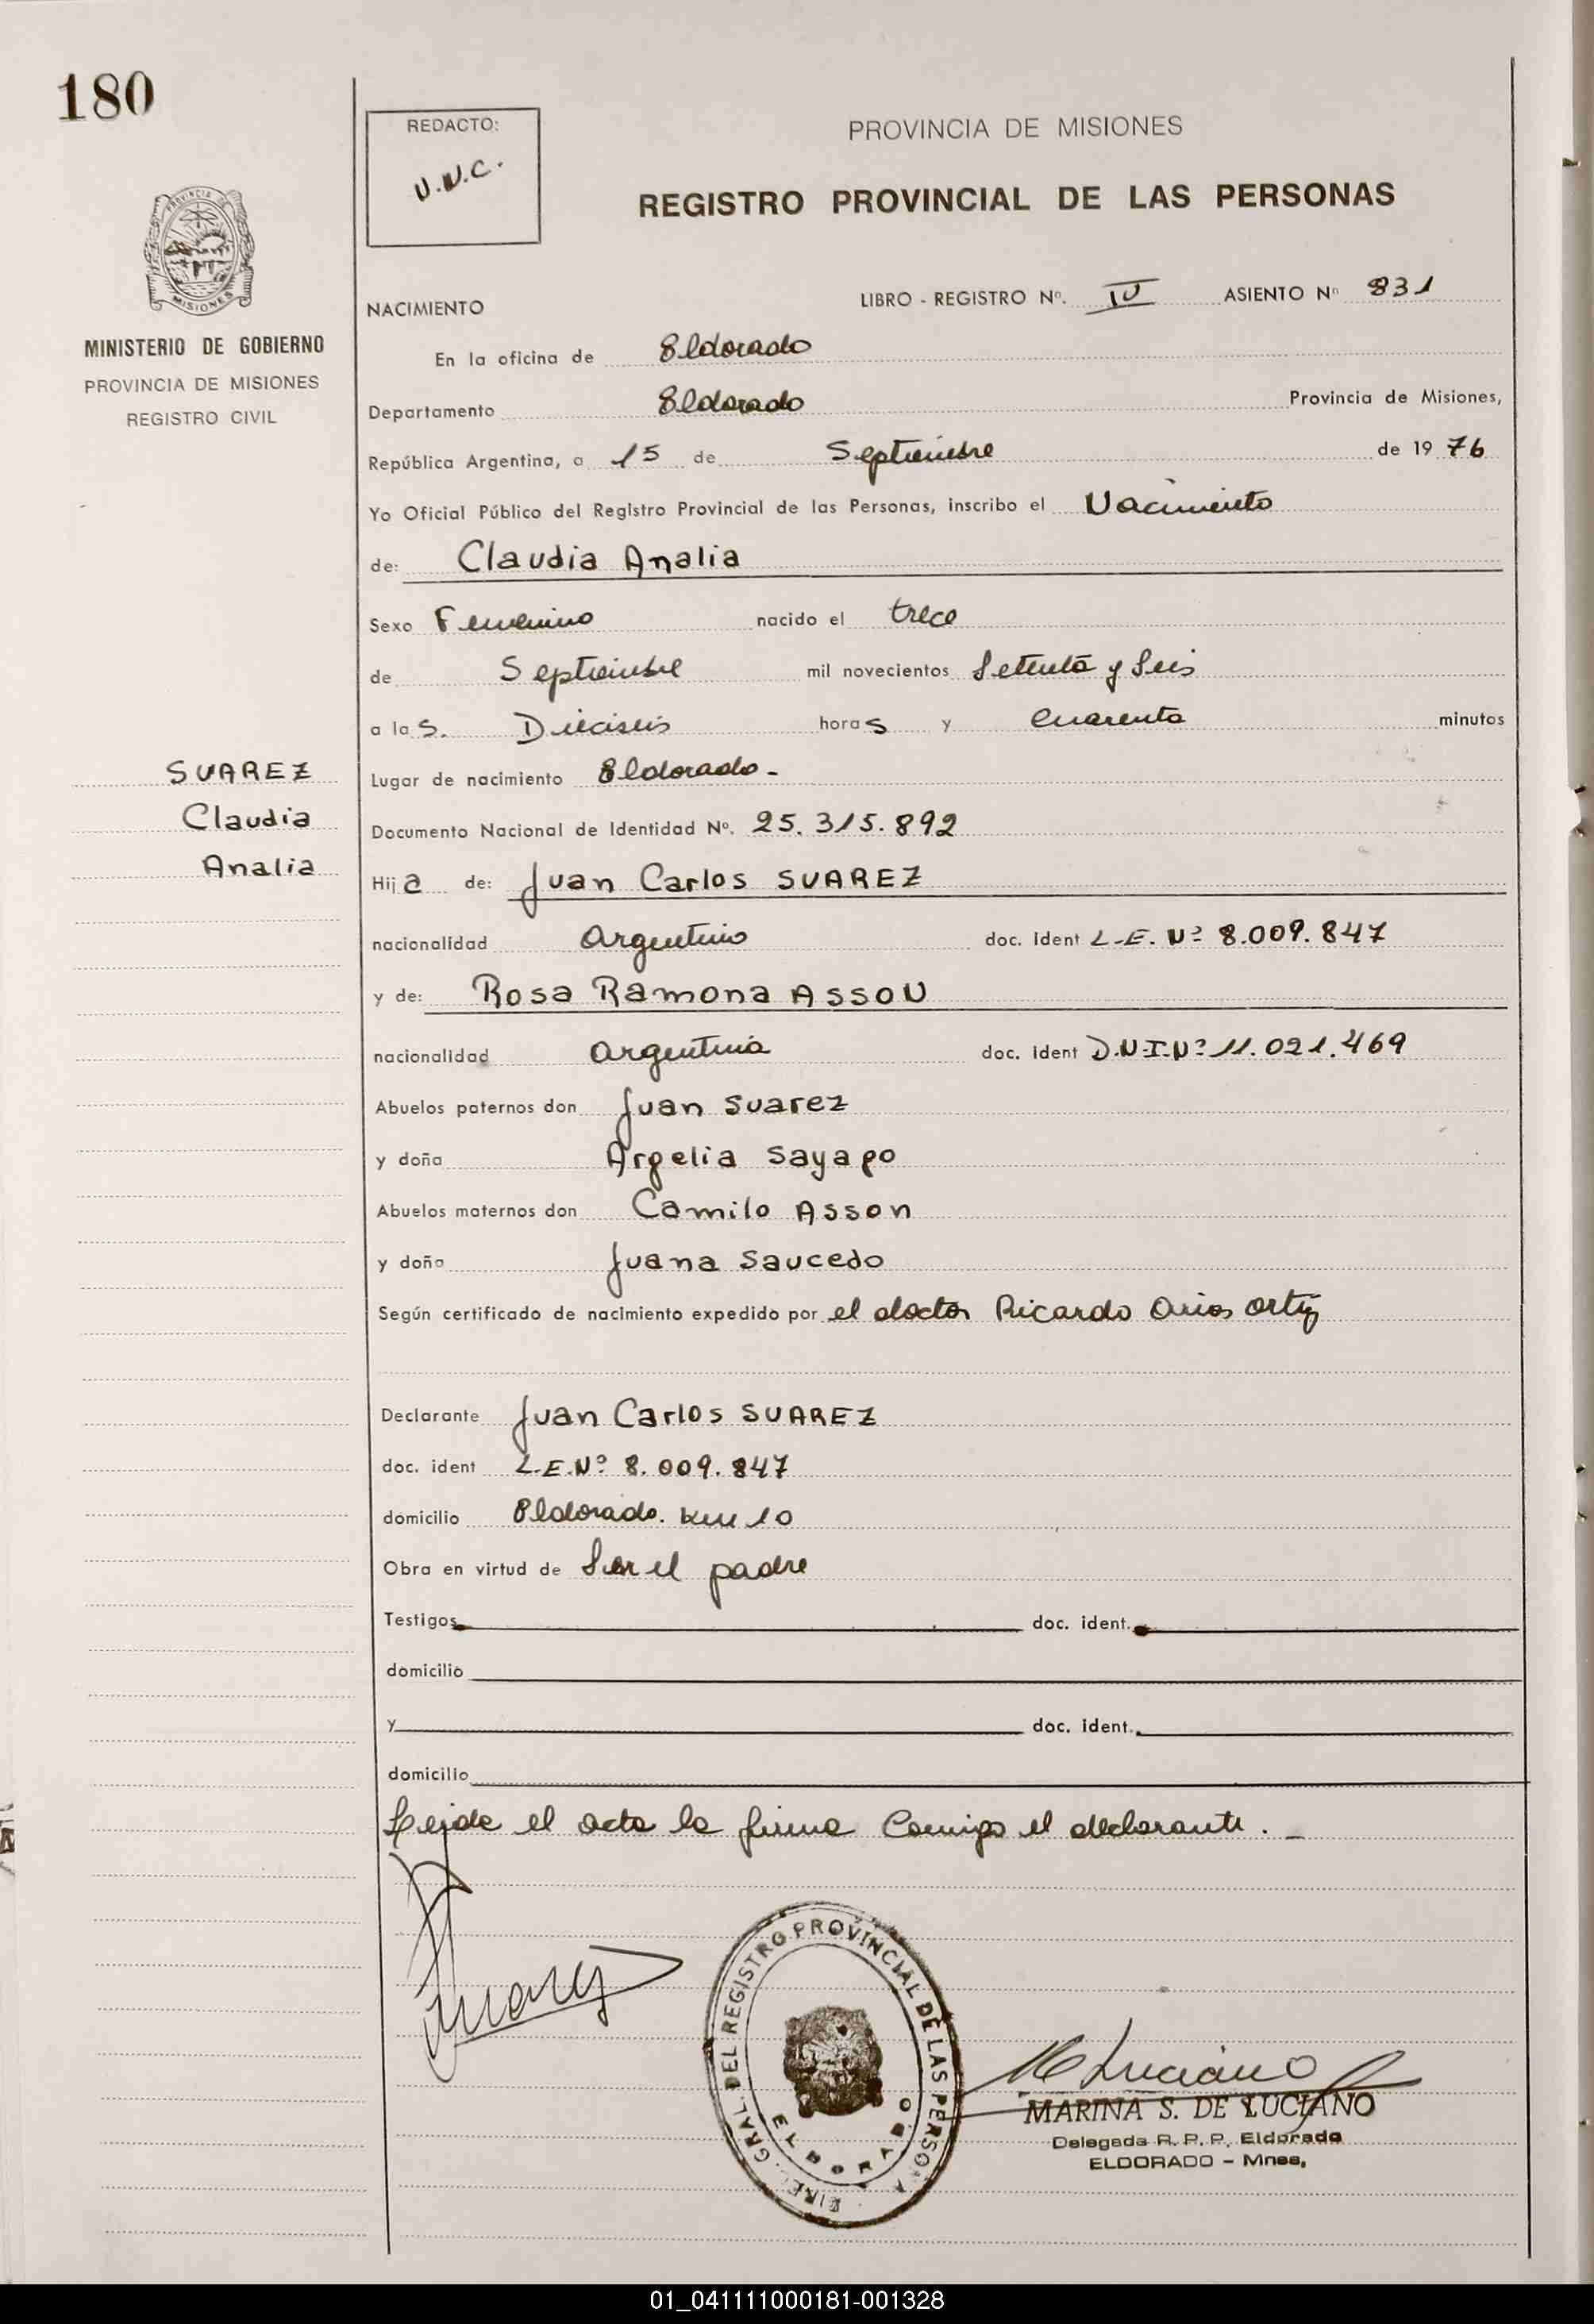 180
REDACTO:
U.N.C.
PROVINCIA DE MISIONES
REGISTRO PROVINCIAL DE LAS PERSONAS
PROVINCIA
MISIONES
MINISTERIO DE GOBIERNO
PROVINCIA DE MISIONES
REGISTRO CIVIL
NACIMIENTO
LIBRO - REGISTRO Nº. IV ASIENTO Nº 831
En la oficina de Eldorado
Departamento Eldorado Provincia de Misiones,
República Argentina, a 15 de Septiembre de 1976
Yo Oficial Público del Registro Provincial de las Personas, inscribo el Nacimiento
de: Claudia Analia
Sexo Femenino nacido el trece
de Septiembre mil novecientos Setenta y Seis
a las. Dieciseis horas y Cuarenta minutos
SUAREZ
Claudia
Analia
Lugar de nacimiento Eldorado-
Documento Nacional de Identidad Nº. 25.315.892
Hija de: Juan Carlos SUAREZ
nacionalidad Argentino doc. ident L.E. Nº 8.009.847
y de: Rosa Ramona ASSON
nacionalidad Argentina doc. ident D.N.I.Nº 11.021.469
Abuelos paternos don Juan Suarez
y doña Argelia Sayago
Abuelos maternos don Camilo Asson
y doña Juana Saucedo
Según certificado de nacimiento expedido por el doctor Ricardo Arios Ortiz
Declarante Juan Carlos SUAREZ
doc. ident L.E.Nº 8.009.847
domicilio Eldorado. Km 10
Obra en virtud de Ser el padre
Testigos doc. ident.
domicilio
y doc. ident.
domicilio
Leida el acta la firma Comigo el declarante.-
Suarez
DIREC. GRAL. DEL REGISTRO PROVINCIAL DE LAS PERSONA
ELDORADO
M Luciano
MARINA S. DE LUCIANO
Delegada R. P. P. Eldorado
ELDORADO - Mnes,
01_041111000181-001328